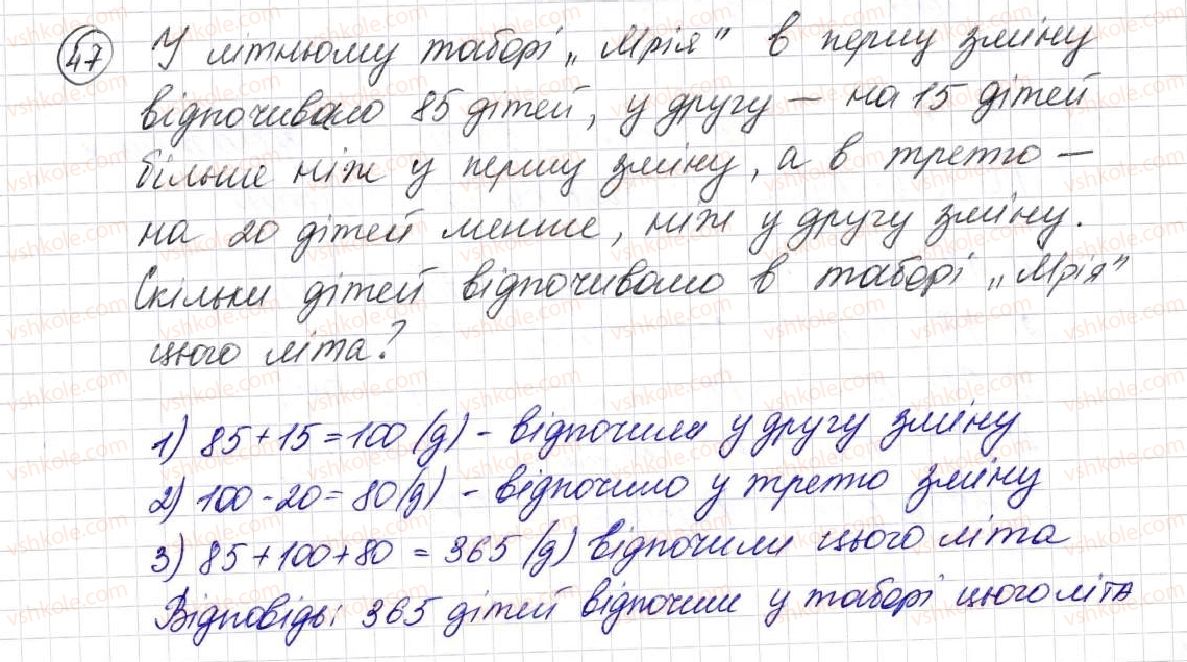 47 У літньому таборі „Мрія" в першу зміну
відпочивало 85 дітей, у другу – на 15 дітей
більше ніж у першу зміну, а в третю –
на 20 дітей менше, ніж у другу зміну.
Скільки дітей відпочивало в таборі „Мрія"
цього літа?
1) 85+15=100 (д) - відпочили у другу зміну
2) 100-20=80(д) - відпочило у третю зміну
3) 85+100+80 = 365 (д) відпочили цього літа
Відповідь: 365 дітей відпочили у таборі цього літа
vshkole.com